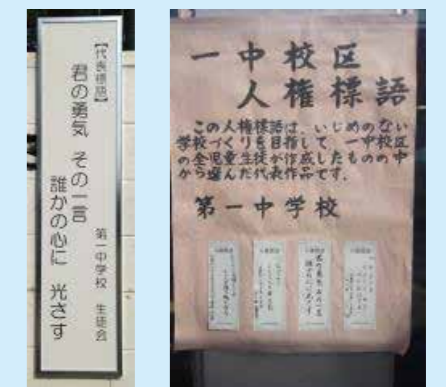 【代表標語】
君の勇気 その一言
誰かの心に 光さす
第一中学校 生徒会
一中校区
人権標語
この人権標語は、いじめのない
学校づくりを目指して、一中校区
の全児童生徒が作成したものの中
から選んだ代表作品です。
第一中学校
君の勇気 その一言
誰かの心に 光さす